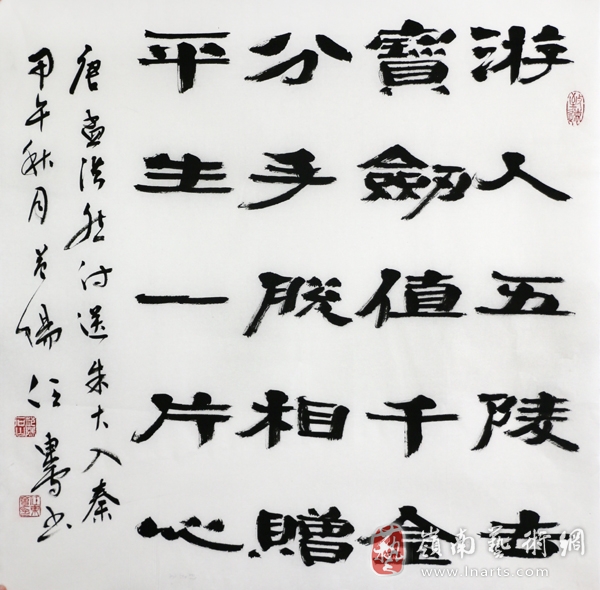 游人五陵去
寶劒值千金
分手脫相贈
平生一片心
唐孟浩然诗送朱大入秦
甲午秋月
嶺南藝術網
www.lnarts.com